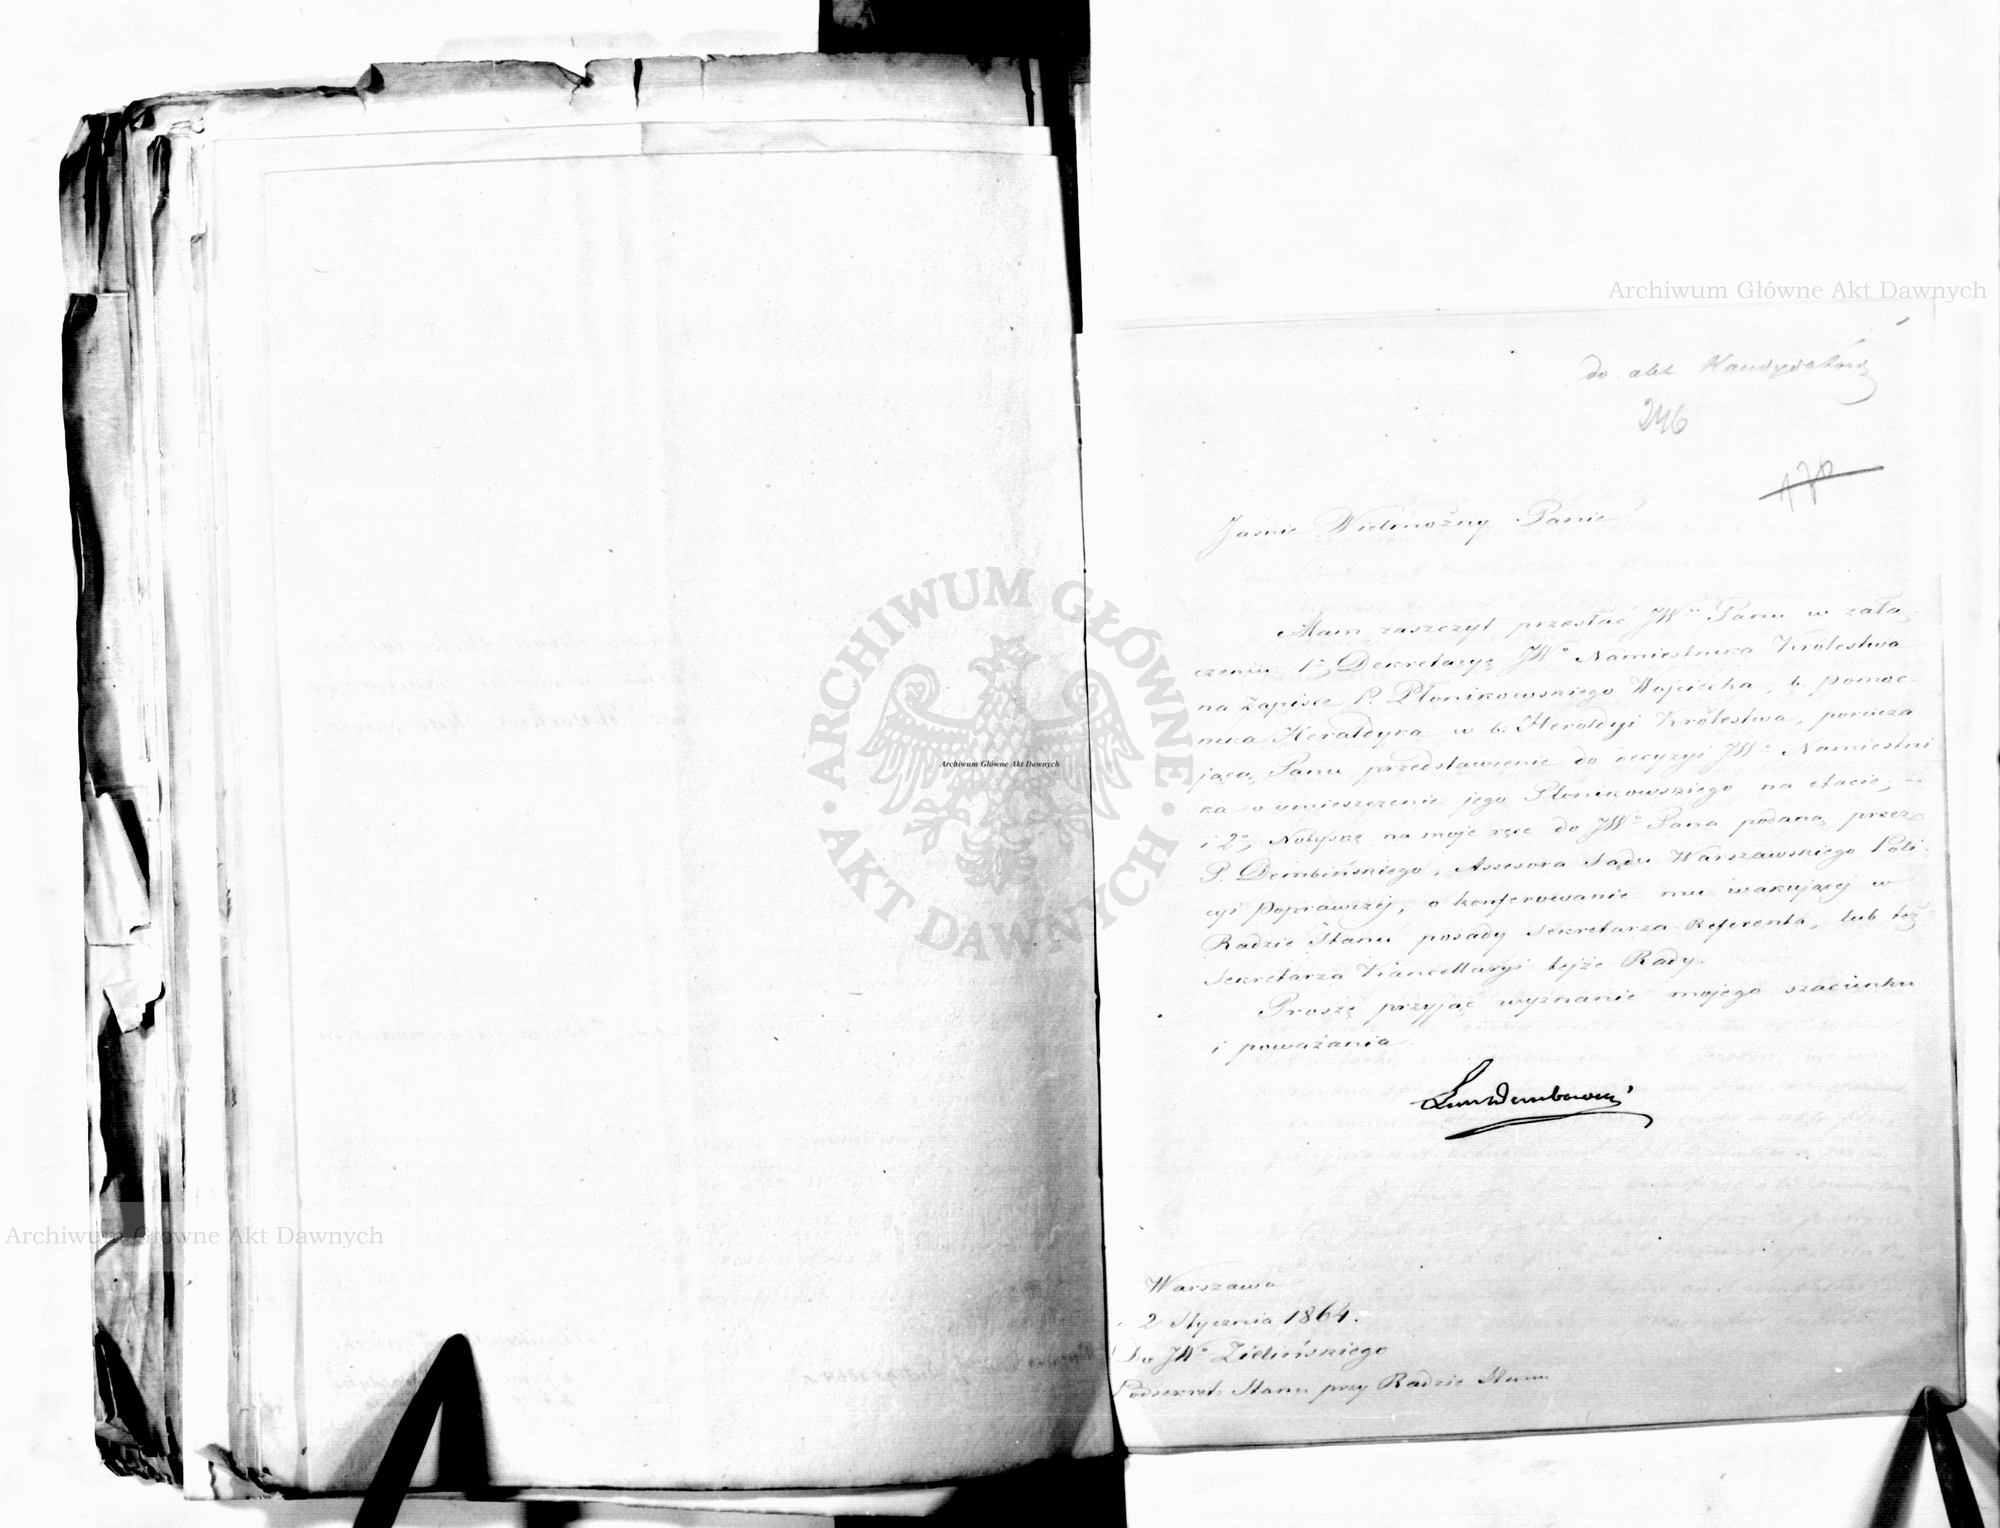 do akt Kandydatów
246
178
Jaśnie Wielmożny Panie
Mam zaszczyt przesłać JWu Panu w załą
czeniu 1o Dekretacyę JWo Namiestnika Królestwa
na Zapisce P. Płonikowskiego Wojciecha, b. pomoc-
nika Heraldyka w b. Heroldyi Królestwa, porucza
jącą Panu przedstawienie do decyzyi JWo Namiestni
ka o umieszczenie jego Płonikowskiego na etacie, —
i 2o Notyskę na moje ręce do JWo Pana podaną przez
P. Dembińskiego, Assesora Sądu Warszawskiego Poli-
cyi Poprawczej, o konferowanie mu wakującej w
Radzie Stanu posady Sekretarza Referenta, lub też
Sekretarza Kancellaryi tejże Rady.
Proszę przyjąć wyznanie mojego szacunku
i poważania
Warszawa
2 Stycznia 1864.
Do JWo Zielińskiego
Podsekret: Stanu przy Radzie Stanu
Archiwum Główne Akt Dawnych
Archiwum Główne Akt Dawnych
Archiwum Główne Akt Dawnych
ARCHIWUM GŁÓWNE
AKT DAWNYCH